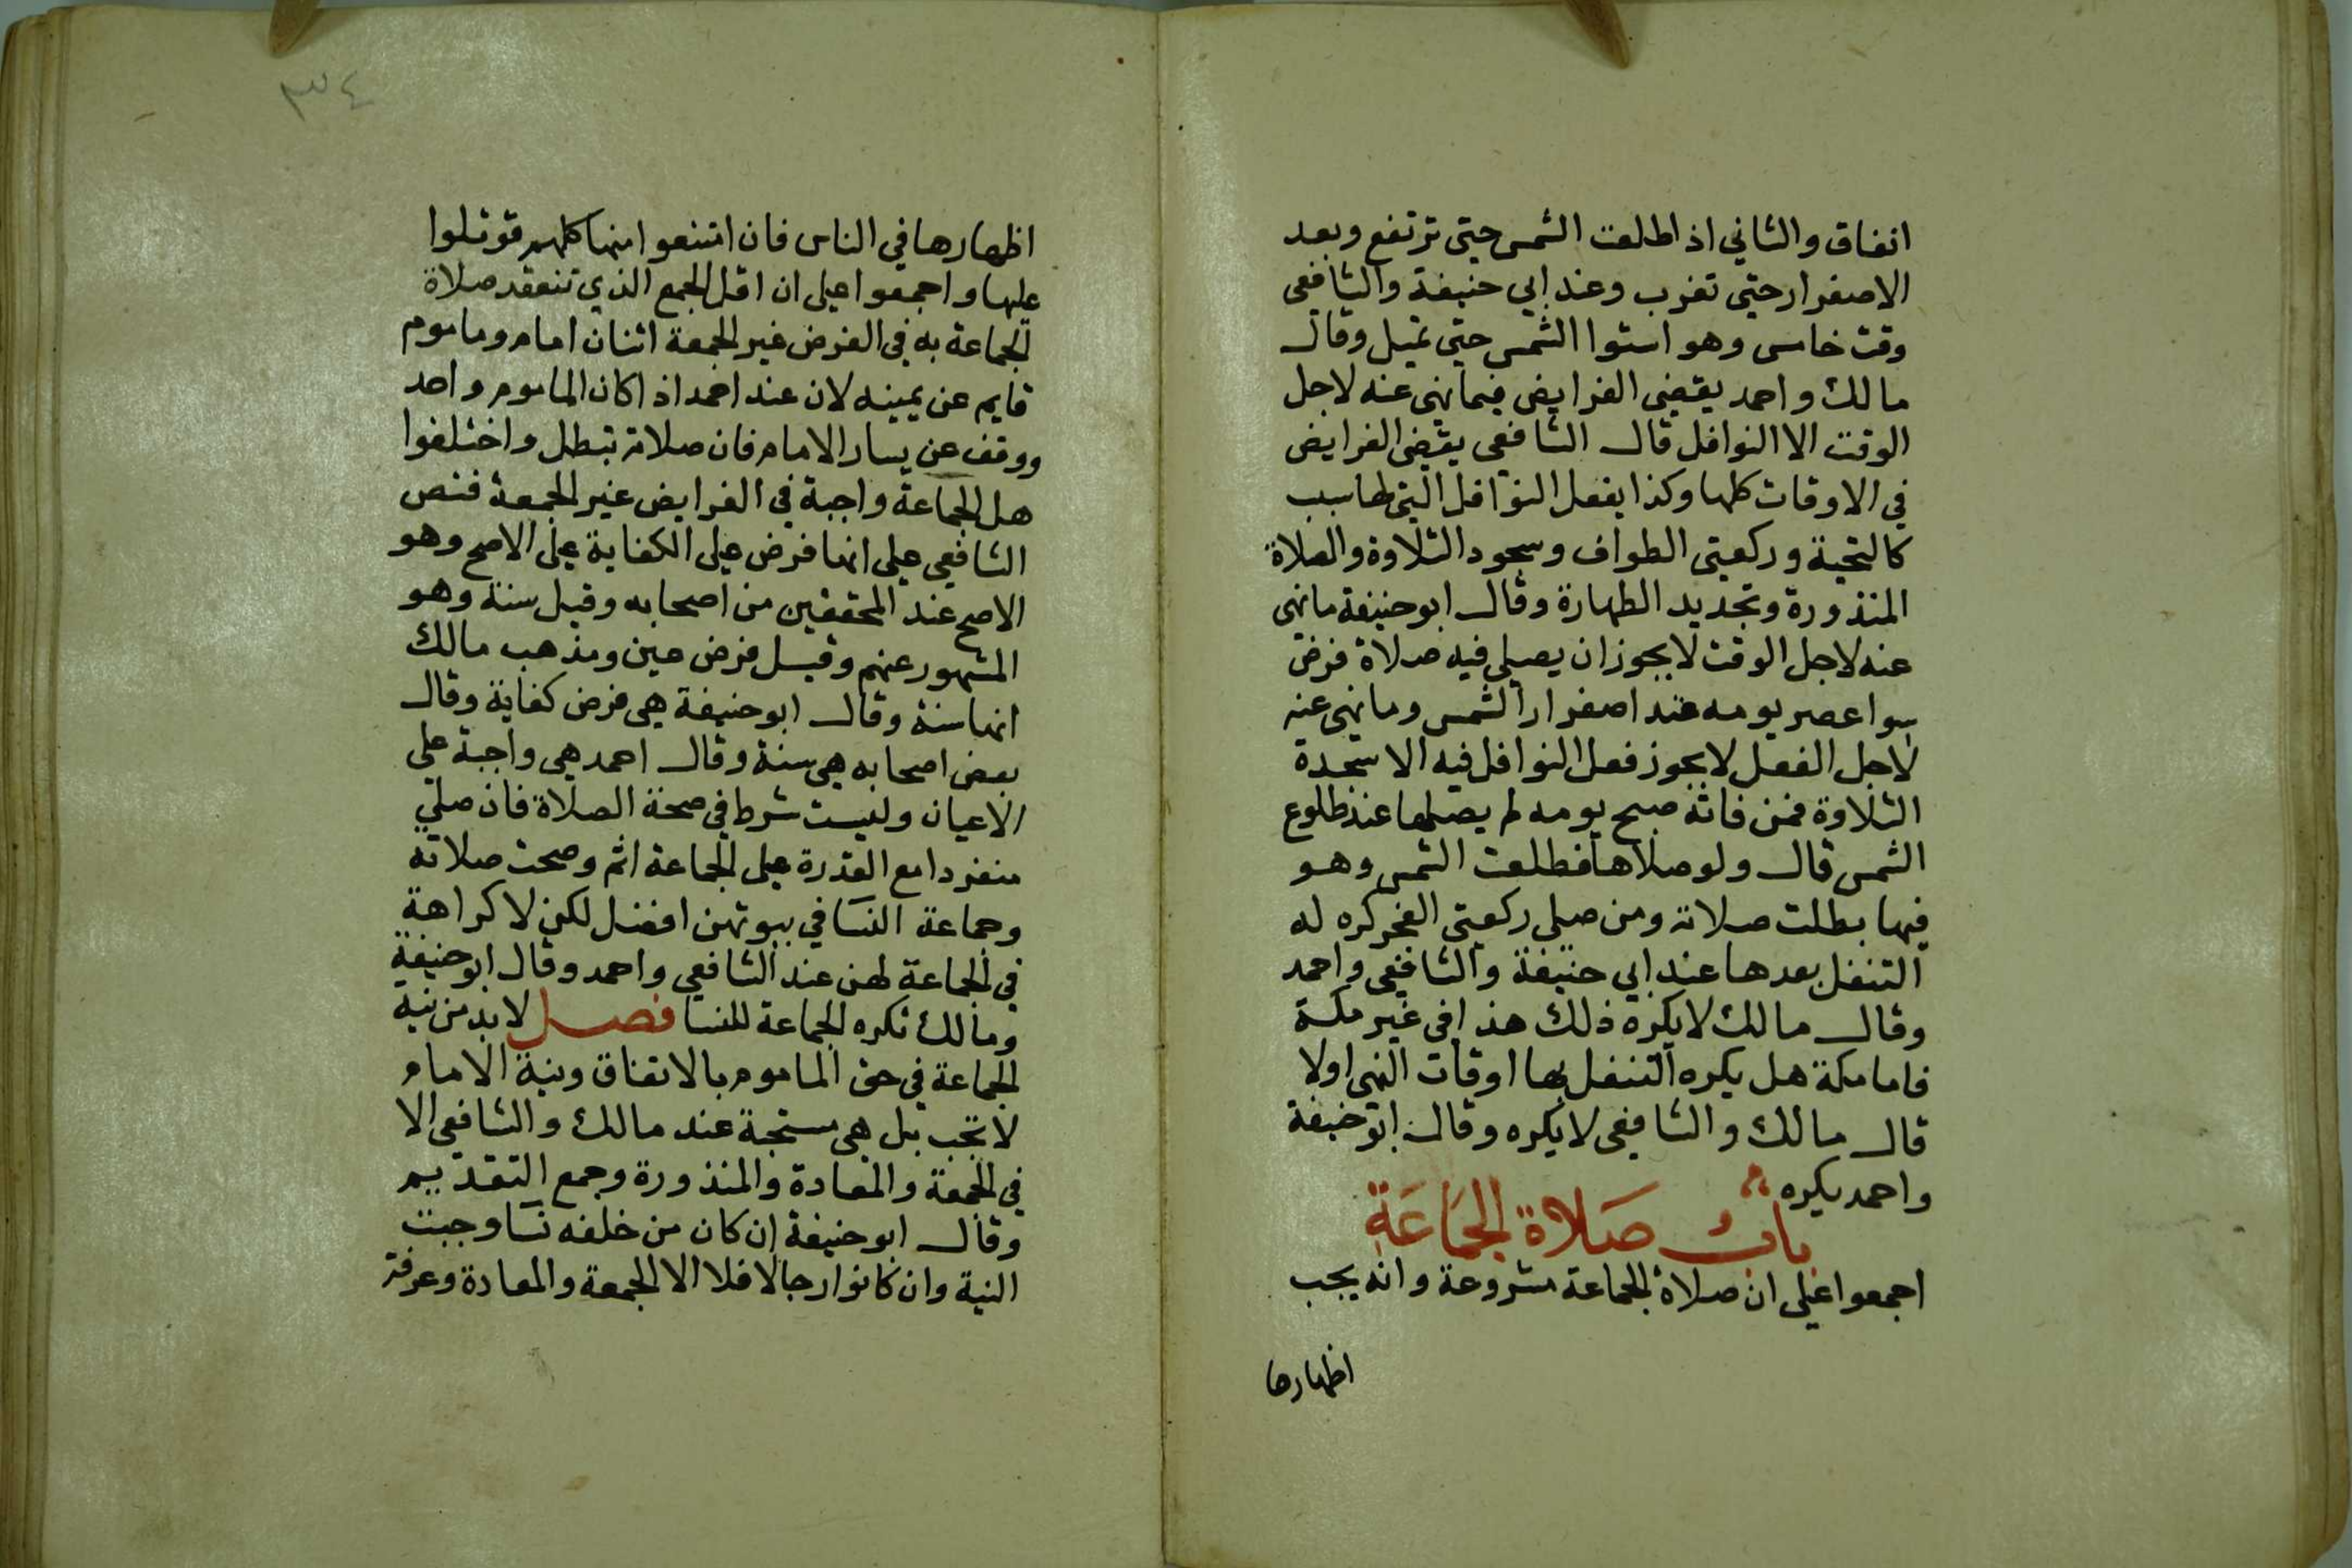 اتفاق والثاني اذا طلعت الشمس حتي ترتفع وبعد
الاصفرار حتي تغرب وعند ابي حنيفة والشافعي
وقت خامس وهو استوا الشمس حتي تميل وقال
مالك واحمد يقضي الفرايض فيما نهي عنه لاجل
الوقت الا النوافل قال الشافعي يقضي الفرايض
في الاوقات كلها وكذا يفعل النوافل التي لها سبب
كالتحية وركعتي الطواف وسجود التلاوة والصلاة
المنذورة وتجديد الطهارة وقال ابو حنيفة ما نهي
عنه لاجل الوقت لا يجوز ان يصلي فيه صلاة فرض
سوا عصر يومه عند اصفرار الشمس وما نهي عنه
لاجل الفعل لا يجوز فعل النوافل فيه الا سجدة
التلاوة فمن فاته صبح يومه لم يصلها عند طلوع
الشمس قال ولو صلاها فطلعت الشمس وهو
فيها بطلت صلاته ومن صلي ركعتي الفجر كره له
التنفل بعدها عند ابي حنيفة والشافعي واحمد
وقال مالك لا يكره ذلك هذا في غير مكة
فاما مكة هل يكره التنفل بها اوقات النهي اولا
قال مالك والشافعي لا يكره وقال ابو حنيفة
واحمد يكره
باب صَلاة الجمَاعَةِ
اجمعوا علي ان صلاة الجماعة مشروعة وانه يجب
اظهارها
٣٤
اظهارها في الناس فان امتنعوا منها كلهم قوتلوا
عليها واجمعوا علي ان اقل الجمع الذي تنعقد صلاة
الجماعة به في الفرض غير الجمعة اثنان امام وماموم
قايم عن يمينه لان عند احمد اذا كان الماموم واحد
ووقف عن يسار الامام فان صلاته تبطل واختلفوا
هل الجماعة واجبة في الفرايض غير الجمعة فنص
الشافعي علي انها فرض علي الكفاية علي الاصح وهو
الاصح عند المحققين من اصحابه وقيل سنة وهو
المشهور عنهم وقيل فرض عين ومذهب مالك
انها سنة وقال ابو حنيفة هي فرض كفاية وقال
بعض اصحابه هي سنة وقال احمد هي واجبة علي
الاعيان وليست شرط في صحة الصلاة فان صلي
منفردا مع القدرة علي الجماعة اثم وصحت صلاته
وجماعة النسا في بيوتهن افضل لكن لا كراهة
في الجماعة لهن عند الشافعي واحمد وقال ابو حنيفة
ومالك تكره الجماعة للنسا فصل لا بد من نية
الجماعة في حق الماموم بالاتفاق ونية الامام
لا تجب بل هي مستحبة عند مالك والشافعي الا
في الجمعة والمعادة والمنذورة وجمع التقديم
وقال ابو حنيفة ان كان من خلفه نسا وجبت
النية وان كانوا رجالا فلا الا الجمعة والمعادة وعرفة